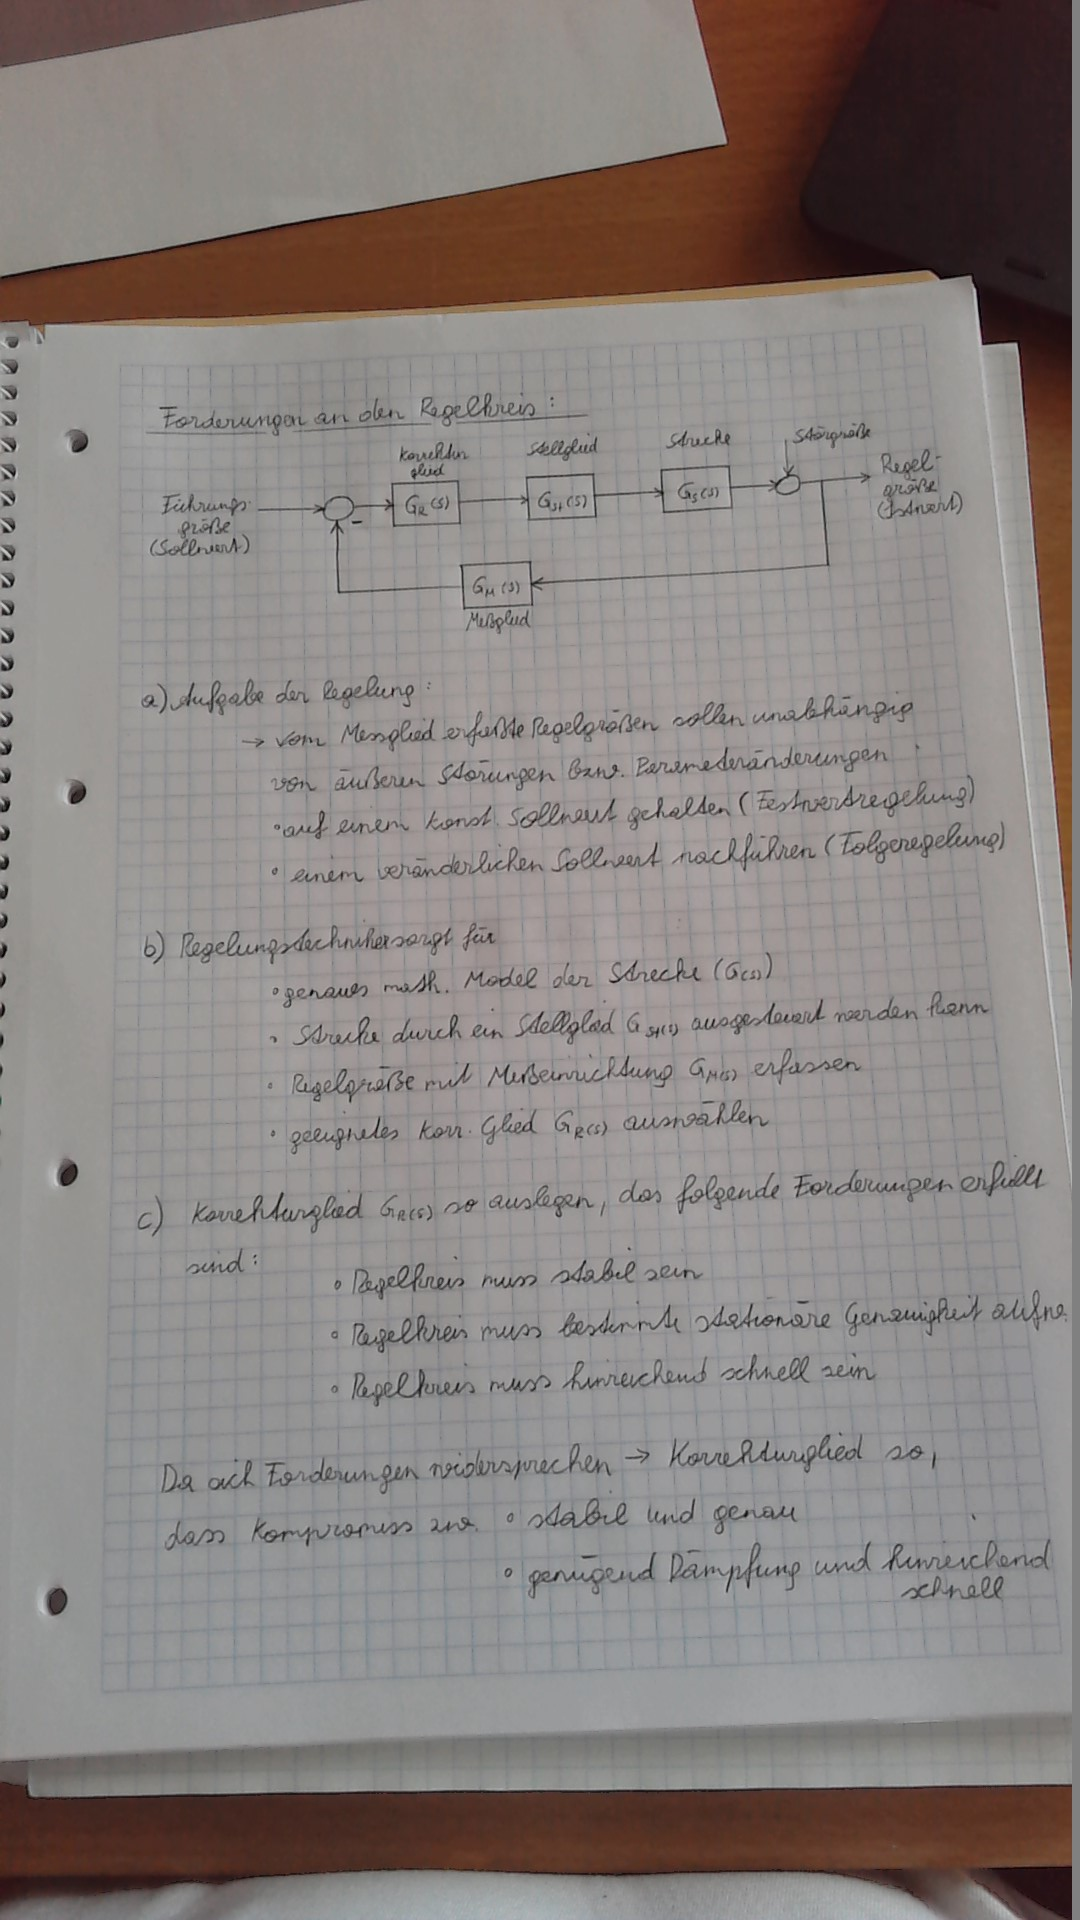 Forderungen an den Regelkreis:
Korrektur
glied
Stellglied
Strecke
Störgröße
Führungs-
größe
(Sollwert)
-
GR(s)
GSt(s)
GS(s)
Regel-
größe
(Istwert)
GM(s)
Meßglied
a) Aufgabe der Regelung:
→ vom Messglied erfaßte Regelgrößen sollen unabhängig
von äußeren Störungen bzw. Parameteränderungen
• auf einem konst. Sollwert gehalten (Festwertregelung)
• einem veränderlichen Sollwert nachführen (Folgeregelung)
b) Regelungstechniker sorgt für
• genaues math. Model der Strecke (G(s))
• Strecke durch ein Stellglied GSt(s) ausgesteuert werden kann
• Regelgröße mit Meßeinrichtung GM(s) erfassen
• geeignetes Korr. Glied GR(s) auswählen
c) Korrekturglied GR(s) so auslegen, das folgende Forderungen erfüllt
sind:
• Regelkreis muss stabil sein
• Regelkreis muss bestimmte stationäre Genauigkeit aufw.
• Regelkreis muss hinreichend schnell sein
Da sich Forderungen widersprechen → Korrekturglied so,
dass Kompromiss zw. • stabil und genau
• genügend Dämpfung und hinreichend
schnell